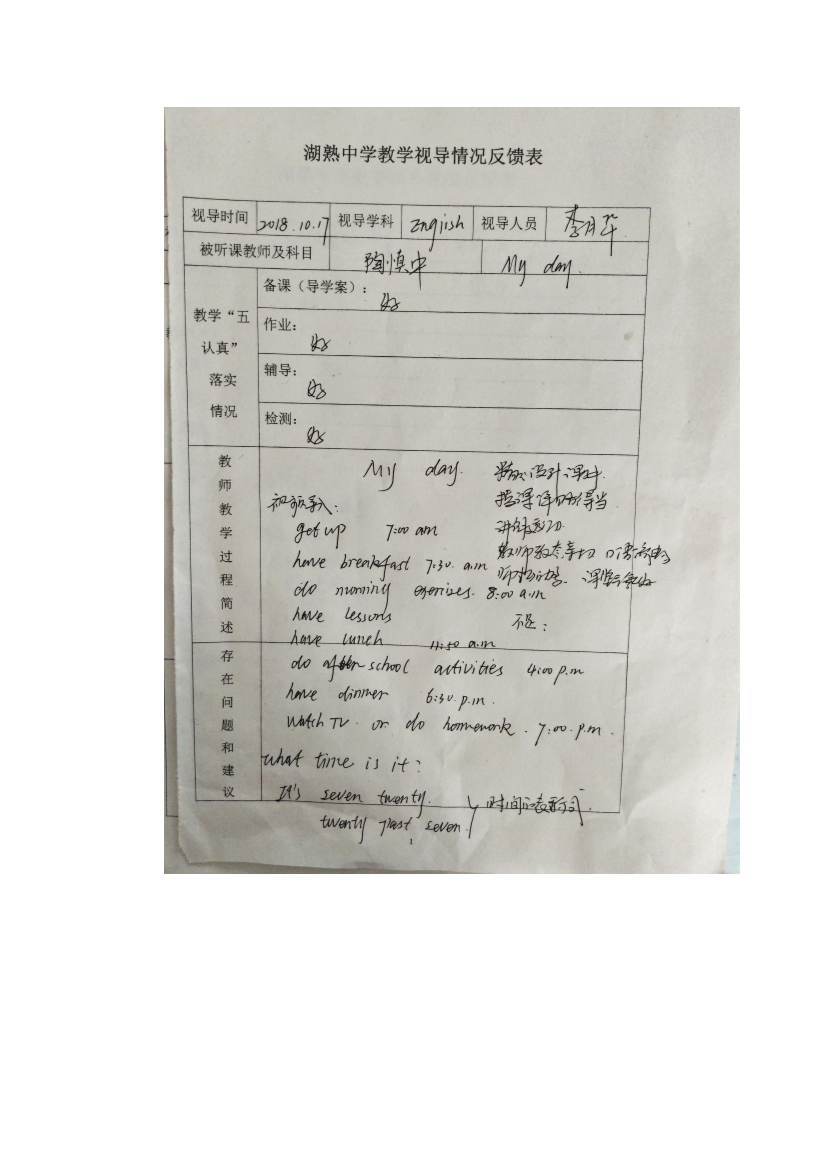 湖熟中学教学视导情况反馈表
视导时间 2018.10.17 视导学科 English 视导人员 李月华
被听课教师及科目 陶慎中 My day.
教学“五认真”落实情况
备课（导学案）： 好
作业： 好
辅导： 好
检测： 好
教师教学过程简述
My day.
视频导入：
get up 7:00 am
have breakfast 7:30 a.m
do morning exercises. 8:00 a.m
have lessons
have lunch 11:50 a.m
设计课件
授课详略得当
教师教态亲切 口语
不足：
存在问题和建议
do after school activities 4:00 p.m
have dinner 6:30. p.m.
Watch TV. or do homework. 7:00. p.m.
what time is it?
It's seven twenty.
twenty past seven.
时间的表示方式.